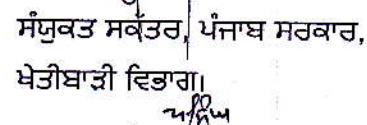 ਸੰਯੁਕਤ ਸਕੱਤਰ, ਪੰਜਾਬ ਸਰਕਾਰ,
ਖੇਤੀਬਾੜੀ ਵਿਭਾਗ।